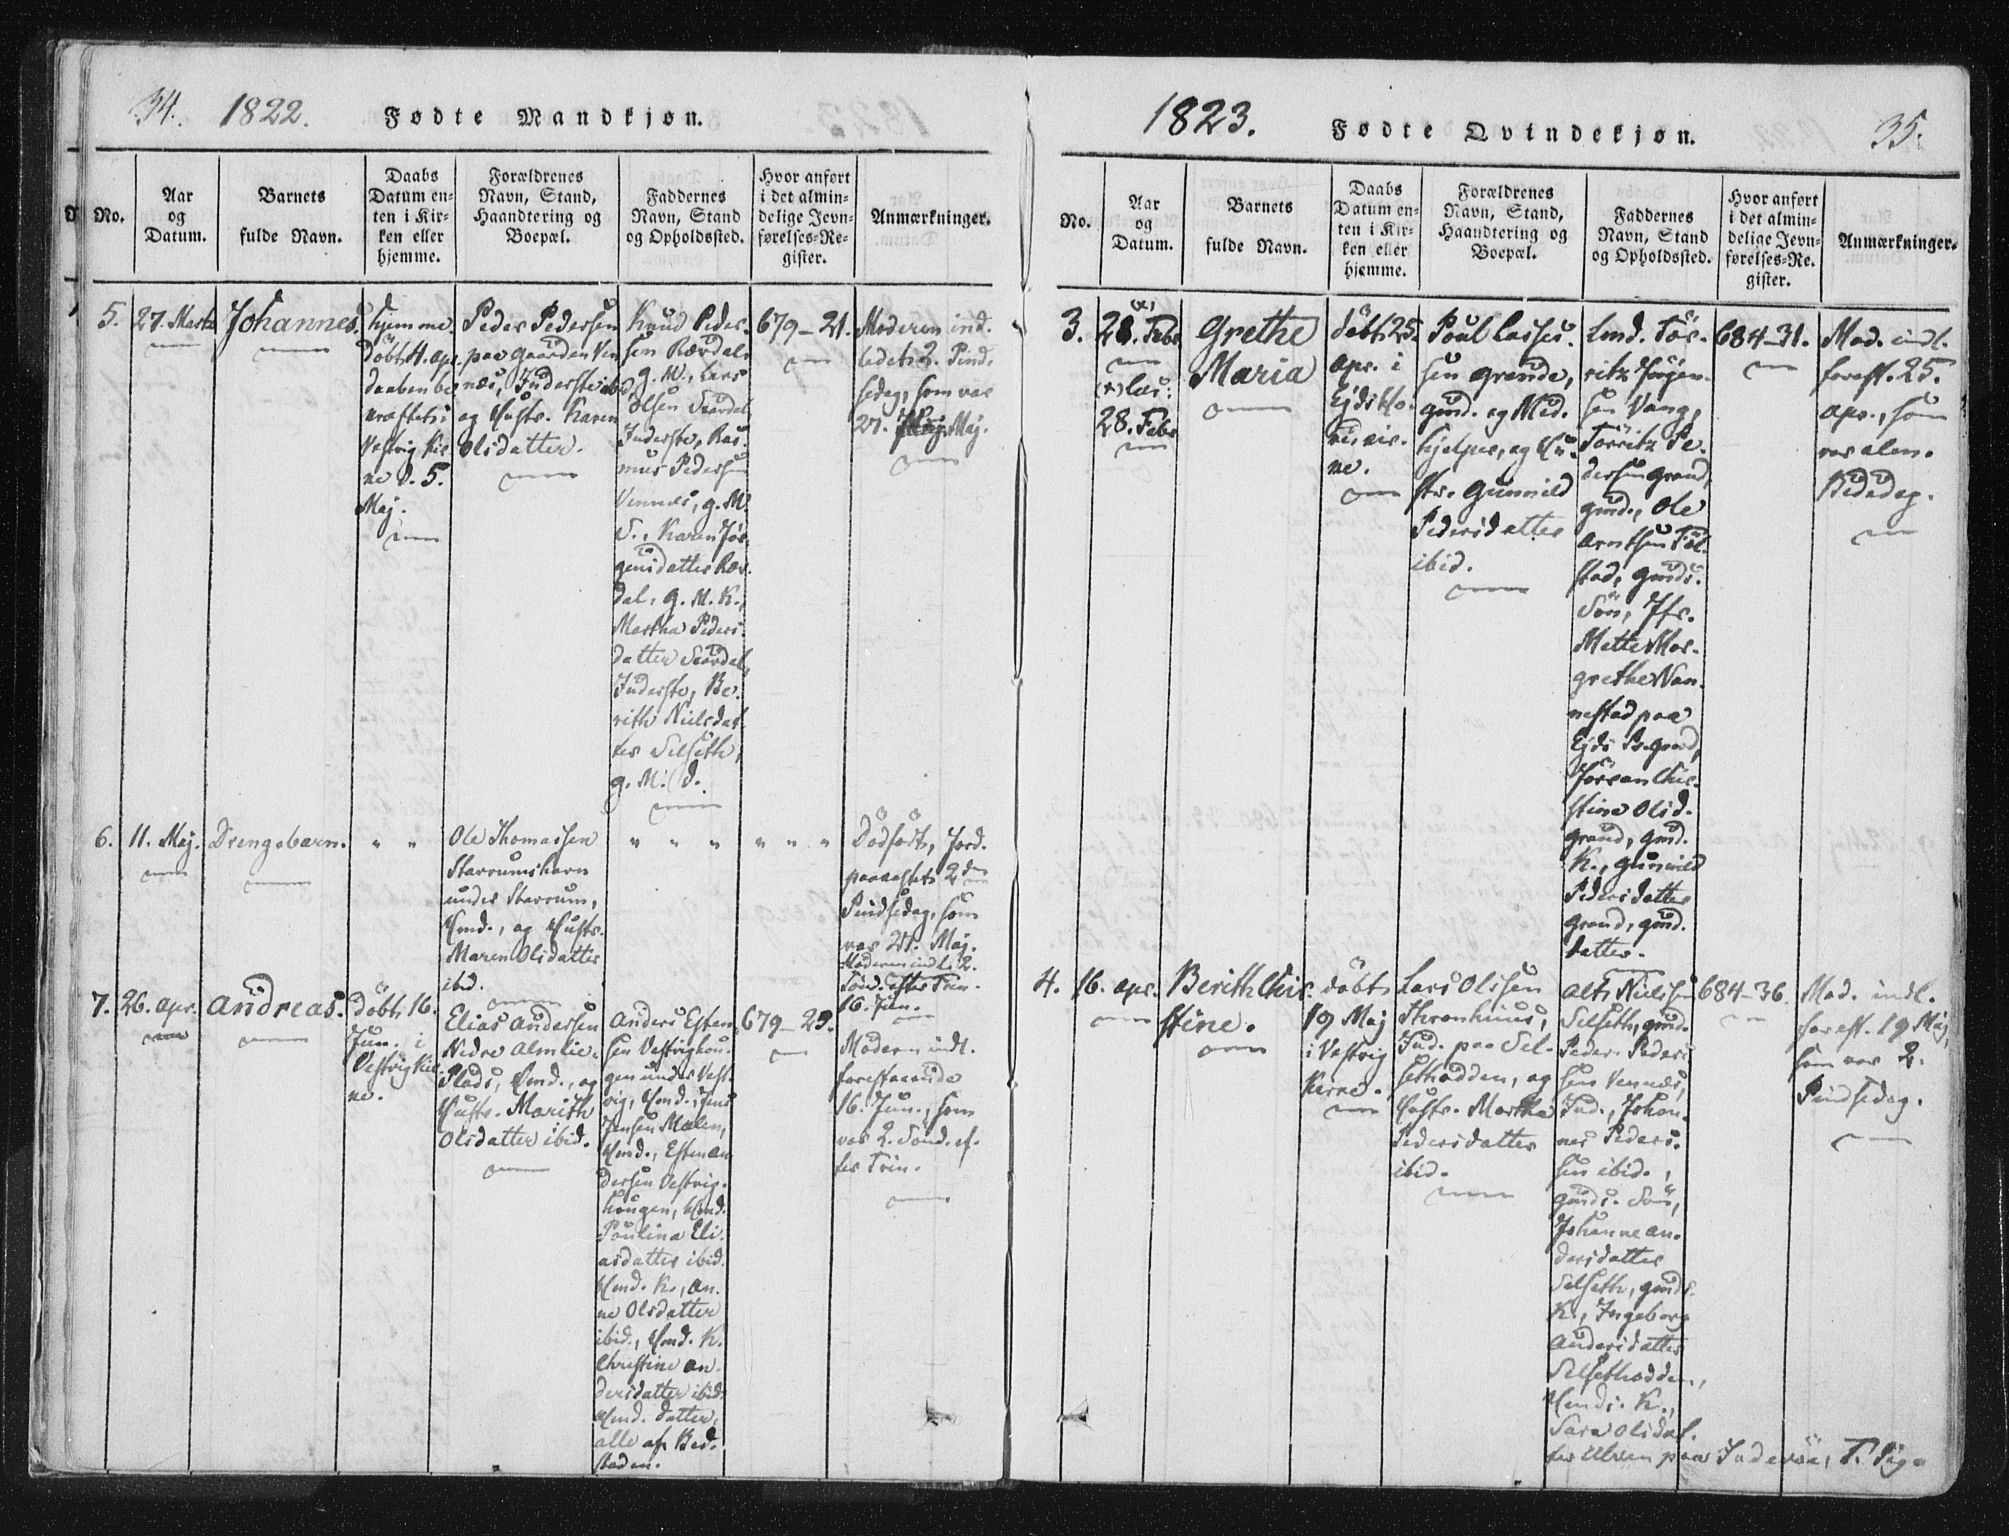 34. 1822. Fødte Mandkjøn.
No.
Aar
og
Datum.
Barnets
fulde Navn.
Daabs
Datum en-
ten i Kir-
ken eller
hjemme.
Forældrenes
Navn, Stand,
Haandtering og
Boepæl.
Faddernes
Navn, Stand
og Opholdssted.
Hvor anført
i det almin-
delige Jevn-
førelses-Re-
gister.
Anmærkninger.
5.
27. Marts
Johannes.
hjemme
döbt 4. apr.
daaben be
kræftet i
Vestvig Kir
ke d. 5.
Maj.
Peder Pedersen
paa gaarden Ven
næs, Inderste ibid.
og Hustr. Karen
Olsdatter.
Knud Peder-
sen Rævdal
g. M., Lars
Olsen
Inderste, Ras-
mus Pedersen
Vennæs, g. M.
S., Karen Jör-
gensdatter Ræv-
dal, g. M. K.,
Martha Peders-
datter
Inderste, Be-
rith Nielsdat-
ter Selseth,
g. M. d.
679-21.
Moderen ind-
ledet 2. Pind-
sedag, som var
27. Maj.
6.
11. Maj.
Drengebarn.
" "
Ole Thomassen
Starrumshavn
under Starrum,
Hmd., og Hustr.
Maren Olsdatter
ibid.
" " "
" " "
Dödfödt, Jord-
paakastet 2den
Pindsedag, som
var 27. Maj.
Moderen indl. 2.
Sönd. efter Trin.
16. Jun.
7.
26. apr.
Andreas.
döbt 16.
Jun. i
Vestvig Kir
ke.
Elias Andersen
Nedre Almlie-
Plads, Hmd., og
Hustr. Marith
Olsdatter ibid.
Anders Esten
sen Vestvighou-
gen under Vest-
vig, Hmd., Jens
Jensen Malen,
Hmd., Esten An
dersen Vestvig-
hougen, Hmd.
Paulina Eli-
asdatter ibid.
Hmd. K., An-
ne Olsdatter
ibid., Hmd. K.
Christine An-
dersdatter ibid.
Hmd. datter,
alle af Bed-
staden.
679-29.
Moderen indl.
forestaaende
16. Jun., som
var 2. Sönd. ef-
ter Trin.
1823. Fødte Qvindekjøn. 35.
No.
Aar
og
Datum.
Barnets
fulde Navn.
Daabs
Datum en-
ten i Kir-
ken eller
hjemme.
Forældrenes
Navn, Stand,
Haandtering og
Boepæl.
Faddernes
Navn, Stand
og Opholdssted.
Hvor anført
i det almin-
delige Jevn-
førelses-Re-
gister.
Anmærkninger.
3.
(x)
28. Febr.
(x) læs:
28. Febr
Grethe
Maria
döbt 25.
apr. i
Ejds Ho-
ved kir-
ke.
Poul Lasse-
sen Grande,
gmd. og Med-
hjelper, og Hu-
str. Gunnild
Pedersdatter
ibid.
Lmd. Tör-
ritz Jörgen-
sen Vang,
Törritz Pe-
dersen Grand,
gmd., Ole
Arntsen Föl-
stad, gmds.
Sön, Jfr.
Mette Mar-
grethe Wan-
nestad paa
Ejds Pr.gaard,
Jöran Chri-
stine Olsd.
Grand, gmd.
K., Gunnild
Pedersdatter
Grand, gmd.
datter.
684-31.
Mod. indl.
forest. 25.
apr., som
var alm.
Bededag.
4.
16. apr.
Berith Chri-
stine.
döbt
19 Maj
i Vestvig
Kirke.
Lars Olsen
Thronhuus,
Ind. paa Sel-
sethodden, og
Hustr. Martha
Pedersdatter
ibid.
Alt Nielsen
Selseth, gmd.
Peder Peder-
sen Vennæs,
Ind., Johan-
nes Peder-
sen ibid.,
gmds. Sön,
Johanne An-
dersdatter
Selseth, gmds.
K., Ingeborg
Andersdatter
Selsethodden,
Hmds. K.,
Sara Olsdat-
ter Ulven paa Inderöe, T. Pig.
684-36.
Mod. indl.
forest. 19 Maj,
som var 2.
Pindsedag.